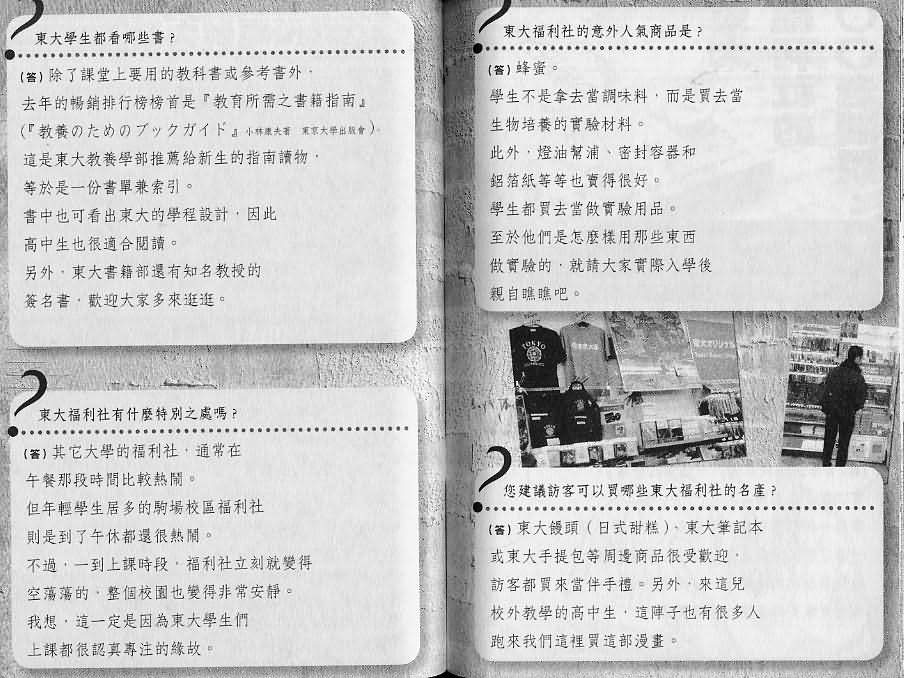 東大學生都看哪些書？
（答）除了課堂上要用的教科書或參考書外，
去年的暢銷排行榜榜首是『教育所需之書籍指南』
（『教養のためのブックガイド』小林康夫著　東京大學出版會）。
這是東大教養學部推薦給新生的指南讀物，
等於是一份書單兼索引。
書中也可看出東大的學程設計，因此
高中生也很適合閱讀。
另外，東大書籍部還有知名教授的
簽名書，歡迎大家多來逛逛。
東大福利社有什麼特別之處嗎？
（答）其它大學的福利社，通常在
午餐那段時間比較熱鬧。
但年輕學生居多的駒場校區福利社
則是到了午休都還很熱鬧。
不過，一到上課時段，福利社立刻就變得
空蕩蕩的，整個校園也變得非常安靜。
我想，這一定是因為東大學生們
上課都很認真專注的緣故。
東大福利社的意外人氣商品是？
（答）蜂蜜。
學生不是拿去當調味料，而是買去當
生物培養的實驗材料。
此外，燈油幫浦、密封容器和
鋁箔紙等等也賣得很好。
學生都買去當做實驗用品。
至於他們是怎麼樣用那些東西
做實驗的，就請大家實際入學後
親自瞧瞧吧。
TOKYO
東大オリジナル
您建議訪客可以買哪些東大福利社的名產？
（答）東大饅頭（日式甜糕）、東大筆記本
或東大手提包等周邊商品很受歡迎，
訪客都買來當伴手禮。另外，來這兒
校外教學的高中生，這陣子也有很多人
跑來我們這裡買這部漫畫。